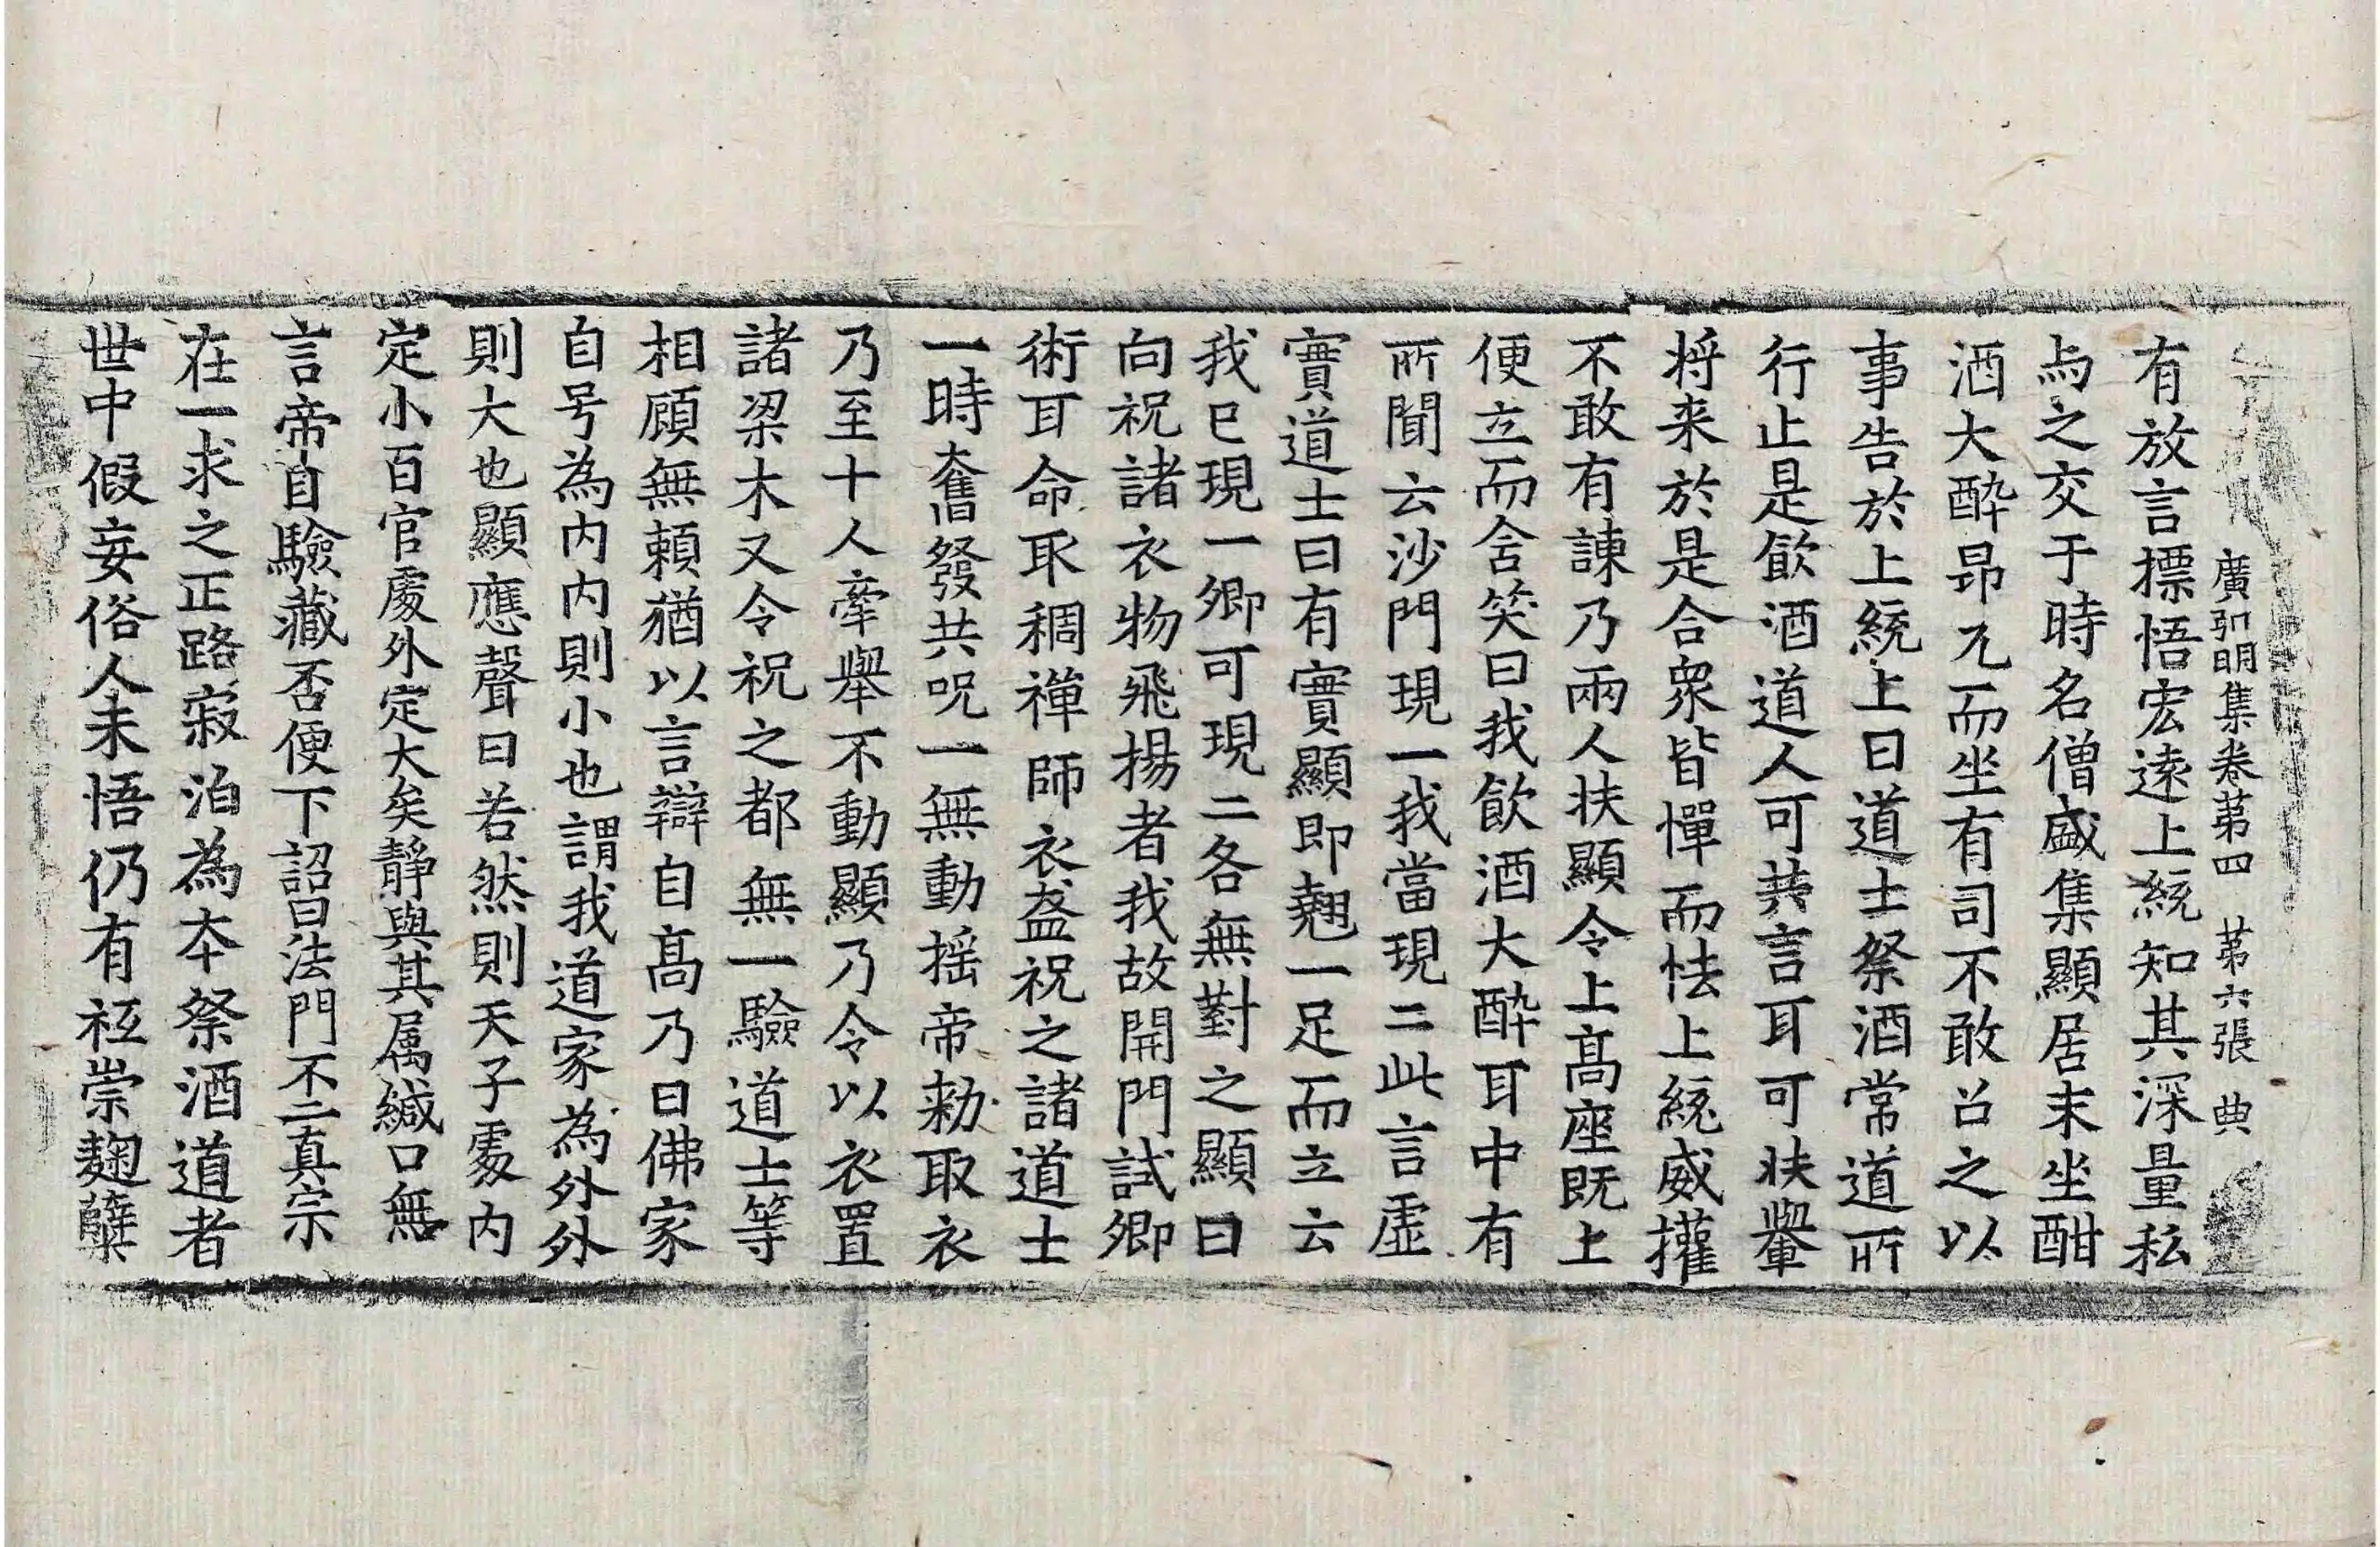 廣弘明集卷苐四 苐六張 典
有放言摽悟宏遠上統知其深量私
与之交于時名僧盛集顯居末坐酣
酒大醉昂兀而坐有司不敢召之以
事告於上統上曰道士祭酒常道所
行止是飮酒道人可共言耳可扶轝
将来於是合衆皆憚而怯上統威權
不敢有諫乃兩人扶顯令上髙座既上
便立而含笑曰我飮酒大醉耳中有
所聞云沙門現一我當現二此言虛
實道士曰有實顯即翹一足而立云
我已現一卿可現二各無對之顯曰
向祝諸衣物飛揚者我故開門試卿
術耳命取稠禪師衣盋祝之諸道士
一時奮發共呪一無動揺帝勑取衣
乃至十人牽舉不動顯乃令以衣置
諸梁木又令祝之都無一驗道士等
相顧無頼猶以言辯自髙乃曰佛家
自号為内内則小也謂我道家為外外
則大也顯應聲曰若然則天子䖏内
定小百官䖏外定大矣靜與其属緘口無
言帝自驗藏否便下詔曰法門不二真宗
在一求之正路寂泊為本祭酒道者
世中假妄俗人未悟仍有祇崇麴糵